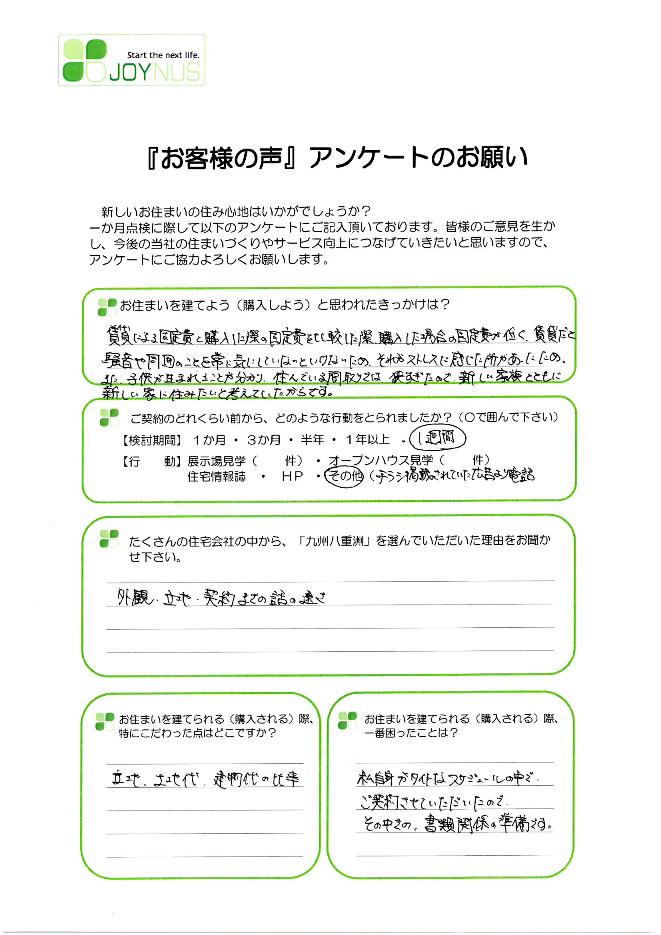 Start the next life.
JOYNUS
『お客様の声』アンケートのお願い
新しいお住まいの住み心地はいかがでしょうか?
一か月点検に際して以下のアンケートにご記入頂いております。皆様のご意見を生か
し、今後の当社の住まいづくりやサービス向上につなげていきたいと思いますので、
アンケートにご協力よろしくお願いします。
お住まいを建てよう(購入しよう)と思われたきっかけは?
賃貸による固定費と購入した際の固定費を比較した際、購入した場合の固定費が低く、賃貸だと
騒音や周囲のことを常に気にしていないといけないため、それがストレスに感じた所があったため、
また、子供が生まれることが分かり、住んでいる間取りでは狭すぎたので、新しい家族とともに
新しい家に住みたいと考えていたからです。
ご契約のどれくらい前から、どのような行動をとられましたか?(○で囲んで下さい)
【検討期間】1か月・3か月・半年・1年以上・1週間
【行 動】展示場見学( 件)・オープンハウス見学( 件)
住宅情報誌 ・ HP ・その他(チラシ掲載されていた広告より電話
たくさんの住宅会社の中から、「九州八重洲」を選んでいただいた理由をお聞か
せ下さい。
外観・立地・契約までの話の速さ
お住まいを建てられる(購入される)際、
特にこだわった点はどこですか?
立地、土地代、建物代の比率
お住まいを建てられる(購入される)際、
一番困ったことは?
私自身がタイトなスケジュールの中で、
ご契約させていただいたので、
その中での、書類関係の準備です。